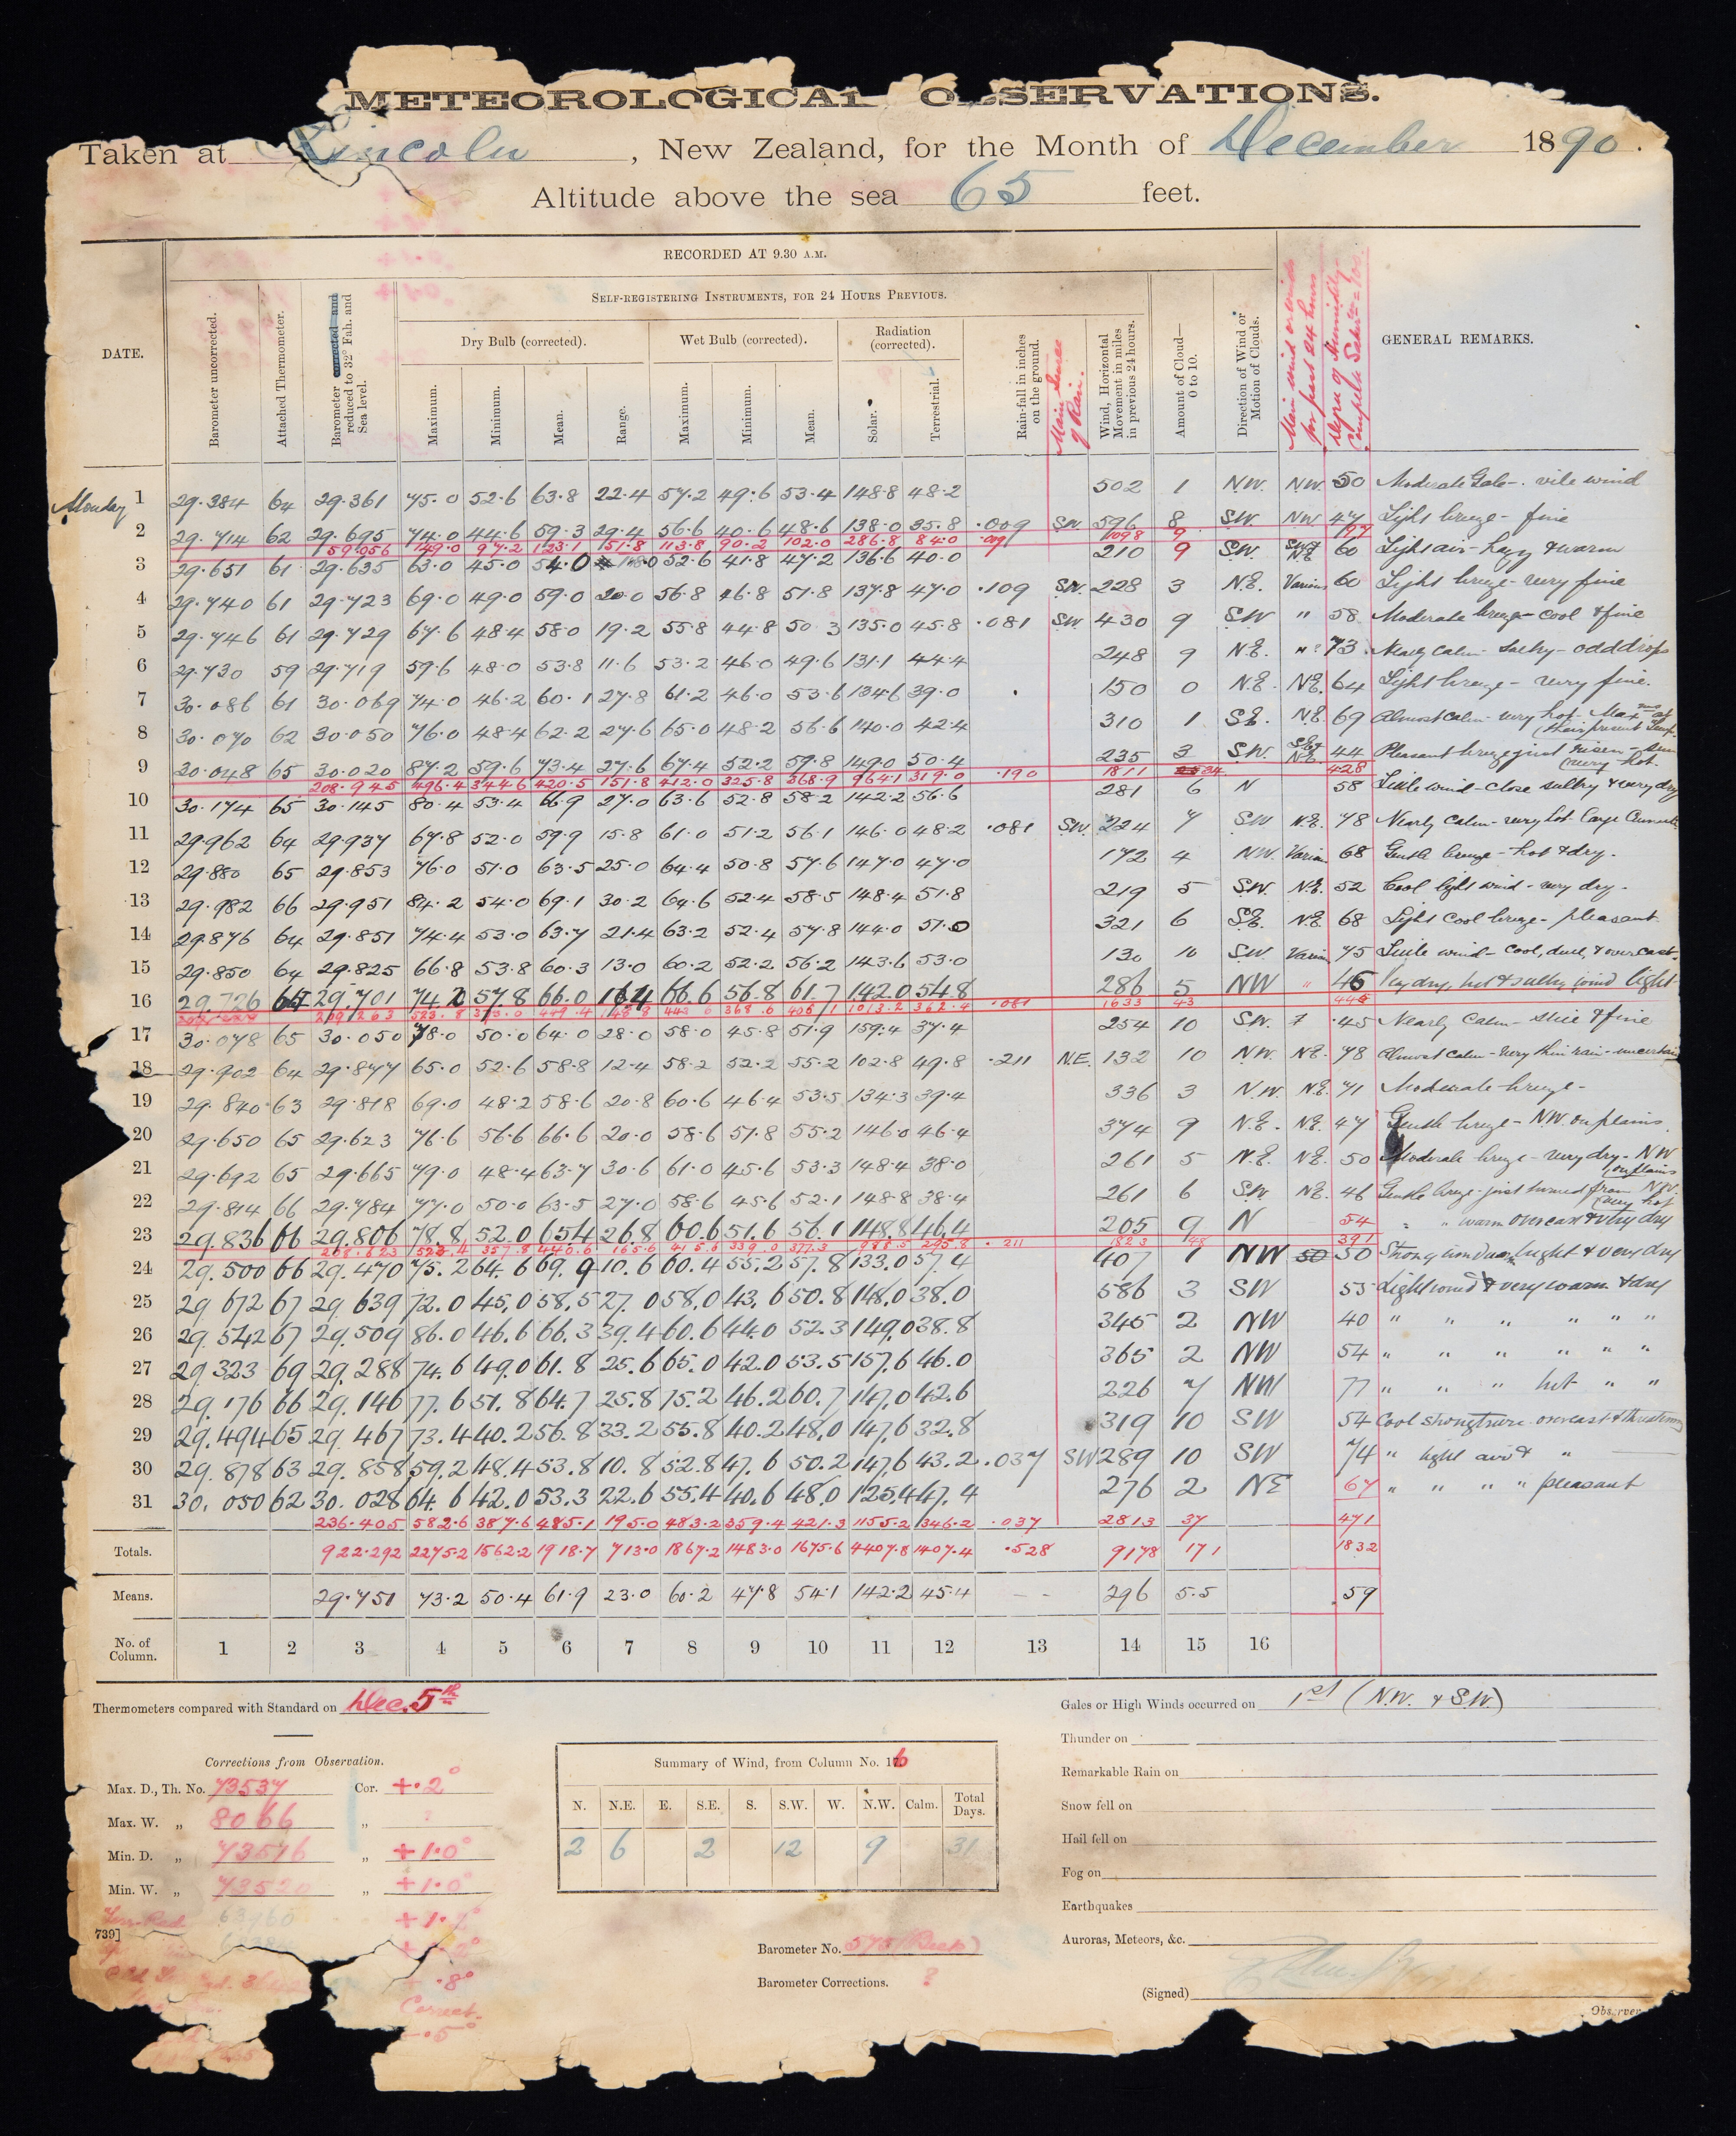 METEOROLOGICAL OBSERVATIONS.
Taken at Lincoln, New Zealand, for the Month of December 1890.
Altitude above the sea 65 feet.
RECORDED AT 9.30 A.M.
SELF-REGISTERING INSTRUMENTS, FOR 24 HOURS PREVIOUS.
DATE.
Barometer uncorrected.
Attached Thermometer.
Barometer corrected and reduced to 32° Fah. and Sea level.
Dry Bulb (corrected).
Maximum. Minimum. Mean. Range.
Wet Bulb (corrected).
Maximum. Minimum. Mean.
Radiation (corrected).
Solar. Terrestrial.
Rain-fall in inches on the ground.
Main Source of Rain.
Wind, Horizontal Movement in miles in previous 24 hours.
Amount of Cloud—0 to 10.
Direction of Wind or Motion of Clouds.
Main wind or winds for past 24 hours
Degree of Humidity
GENERAL REMARKS.
Monday 1 29.384 64 29.361 75.0 52.6 63.8 22.4 57.2 49.6 53.4 148.8 48.2 502 1 NW. NW. 50 Moderate Gale -. vile wind
2 29.714 62 29.695 74.0 44.6 59.3 29.4 56.6 40.6 48.6 138.0 35.8 .009 SW 596 8 SW. NW 47 Light breeze - fine
59.056 149.0 97.2 123.1 51.8 113.8 90.2 102.0 286.8 84.0 .009 1098 9 97
3 29.651 61 29.635 63.0 45.0 54.0 18.0 52.6 41.8 47.2 136.6 40.0 210 9 SW. SW & NE 60 Light air - hazy & warm
4 29.740 61 29.723 69.0 49.0 59.0 20.0 56.8 46.8 51.8 137.8 47.0 .109 SW. 228 3 N.E. Various 60 Light breeze - very fine
5 29.746 61 29.729 67.6 48.4 58.0 19.2 55.8 44.8 50.3 135.0 45.8 .081 SW 430 9 SW " 58 Moderate breeze - cool & fine
6 29.730 59 29.719 59.6 48.0 53.8 11.6 53.2 46.0 49.6 131.1 44.4 248 9 N.E. 73 Nearly calm - sultry - odd drops
7 30.086 61 30.069 74.0 46.2 60.1 27.8 61.2 46.0 53.6 134.6 39.0 150 0 N.E. NE. 64 Light breeze - very fine.
8 30.070 62 30.050 76.0 48.4 62.2 27.6 65.0 48.2 56.6 140.0 42.4 310 1 SE. NE 69 Almost calm - very hot - Maxm at their present Temp
9 30.048 65 30.020 87.2 59.6 73.4 27.6 67.4 52.2 59.8 149.0 50.4 235 3 SW. SE & NE. 44 Pleasant breeze just risen - sun very hot.
208.945 496.4 344.6 420.5 151.8 412.0 325.8 368.9 964.1 319.0 .190 1811 34 428
10 30.174 65 30.145 80.4 53.4 66.9 27.0 63.6 52.8 58.2 142.2 56.6 281 6 N 58 Little wind - close sultry & very dry
11 29.962 64 29.937 67.8 52.0 59.9 15.8 61.0 51.2 56.1 146.0 48.2 .081 SW. 224 7 SW N.E. 78 Nearly calm - very hot - large Cumuli
12 29.880 65 29.853 76.0 51.0 63.5 25.0 64.4 50.8 57.6 147.0 47.0 172 4 NW. Various 68 Gentle breeze - hot & dry.
13 29.982 66 29.951 84.2 54.0 69.1 30.2 64.6 52.4 58.5 148.4 51.8 219 5 SW. N.E. 52 Cool light wind - very dry -
14 29.876 64 29.851 74.4 53.0 63.7 21.4 63.2 52.4 57.8 144.0 51.0 321 6 S.E. NE. 68 Light cool breeze - pleasant
15 29.850 64 29.825 66.8 53.8 60.3 13.0 60.2 52.2 56.2 143.6 53.0 130 10 S.W. Various 75 Little wind - cool, dull, & overcast.
16 29.726 65 29.701 74.2 57.8 66.0 16.4 66.6 56.8 61.7 142.0 54.8 286 5 NW " 46 Very dry, hot & sultry wind light
209.263 523.8 375.0 449.4 148.8 443.6 368.6 406.1 1013.2 362.4 .081 1633 43 445
17 30.078 65 30.050 78.0 50.0 64.0 28.0 58.0 45.8 51.9 159.4 37.4 254 10 S.W. 45 Nearly Calm - nice & fine
18 29.902 64 29.877 65.0 52.6 58.8 12.4 58.2 52.2 55.2 102.8 49.8 .211 N.E. 132 10 NW. NE. 78 Almost calm - very thin rain - uncertain
19 29.840 63 29.818 69.0 48.2 58.6 20.8 60.6 46.4 53.5 134.3 39.4 336 3 N.W. N.E. 71 Moderate breeze -
20 29.650 65 29.623 76.6 56.6 66.6 20.0 58.6 51.8 55.2 146.0 46.4 374 9 N.E. N.E. 47 Gentle breeze - N.W. on plains
21 29.692 65 29.665 79.0 48.4 63.7 30.6 61.0 45.6 53.3 148.4 38.0 261 5 N.E. NE. 50 Moderate breeze - very dry - NW on plains
22 29.814 66 29.784 77.0 50.0 63.5 27.0 58.6 45.6 52.1 148.8 38.4 261 6 SW NE. 46 Gentle breeze - just turned from NW. very hot
23 29.836 66 29.806 78.8 52.0 65.4 26.8 60.6 51.6 56.1 148.8 46.4 205 9 N 54 " " warm overcast & very dry
208.623 523.4 357.8 440.6 165.6 415.6 339.0 377.3 988.5 295.8 .211 1823 48 391
24 29.500 66 29.470 75.2 64.6 69.9 10.6 60.4 55.2 57.8 133.0 57.4 407 1 NW 50 50 Strong wind bright & very dry
25 29.672 67 29.639 72.0 45.0 58.5 27.0 58.0 43.6 50.8 148.0 38.0 586 3 SW 55 Light wind & very warm & dry
26 29.542 67 29.509 86.0 46.6 66.3 39.4 60.6 44.0 52.3 149.0 38.8 345 2 NW 40 " " " " " "
27 29.323 69 29.288 74.6 49.0 61.8 25.6 65.0 42.0 53.5 157.6 46.0 365 2 NW 54 " " " " " "
28 29.176 66 29.146 77.6 51.8 64.7 25.8 75.2 46.2 60.7 147.0 42.6 226 7 NW 77 " " " hot " "
29 29.494 65 29.467 73.4 40.2 56.8 33.2 55.8 40.2 48.0 147.6 32.8 319 10 SW 54 Cool strong overcast & threatening
30 29.878 63 29.858 59.2 48.4 53.8 10.8 52.8 47.6 50.2 147.6 43.2 .037 SW 289 10 SW 74 " light air & "
31 30.050 62 30.028 64.6 42.0 53.3 22.6 55.4 40.6 48.0 125.4 47.4 276 2 NE 67 " " " " pleasant
236.405 582.6 387.6 485.1 195.0 483.2 359.4 421.3 1155.2 346.2 .037 2813 37 471
Totals. 922.292 2275.2 1562.2 1918.7 713.0 1867.2 1483.0 1675.6 4407.8 1407.4 .528 9178 171 1832
Means. 29.751 73.2 50.4 61.9 23.0 60.2 47.8 54.1 142.2 45.4 - - 296 5.5 59
No. of Column. 1 2 3 4 5 6 7 8 9 10 11 12 13 14 15 16
Thermometers compared with Standard on Dec. 5th
Corrections from Observation.
Max. D., Th. No. 73537 Cor. +.2°
Max. W. „ 8066 „ ?
Min. D. „ 73516 „ +1.0°
Min. W. „ 73520 „ +1.0°
739]
.8°
Correct
-.5°
Summary of Wind, from Column No. 16
N. N.E. E. S.E. S. S.W. W. N.W. Calm. Total Days.
2 6 2 12 9 31
Barometer No. 575
Barometer Corrections. ?
Gales or High Winds occurred on 1st (N.W. & S.W.)
Thunder on
Remarkable Rain on
Snow fell on
Hail fell on
Fog on
Earthquakes
Auroras, Meteors, &c.
(Signed)
Observer